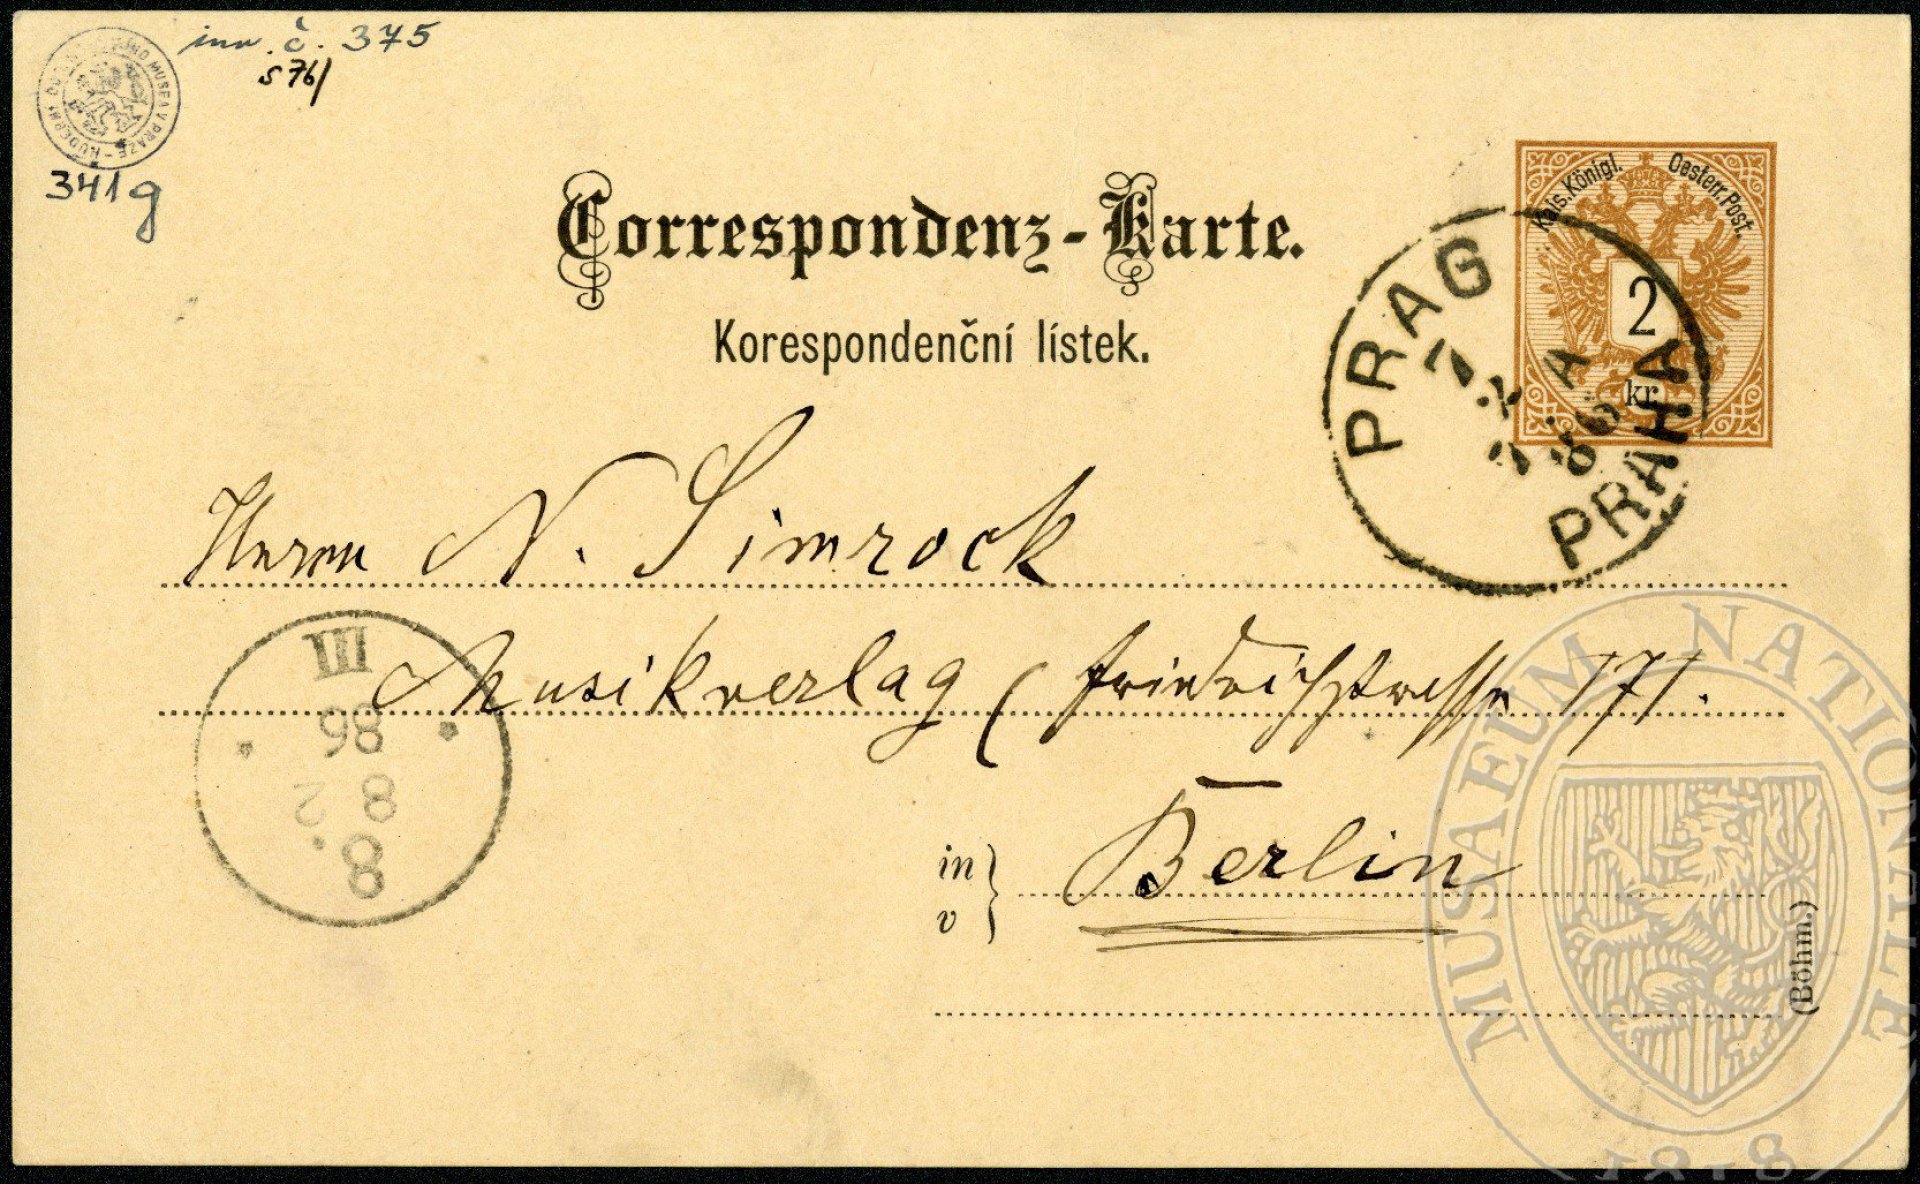 inv. č. 375
S 76/
341g
Correspondenz-Karte.
Korespondenční lístek.
Kais. Königl. Oesterr. Post.
2
kr.
PRAG
86
PRAHA
Herrn N. Simrock
Musikverlag (Friedrichstrasse 171.
in
v
Berlin
(Böhm.)
III
86
8 2
8
MUSAEUM NATIONALE
1818